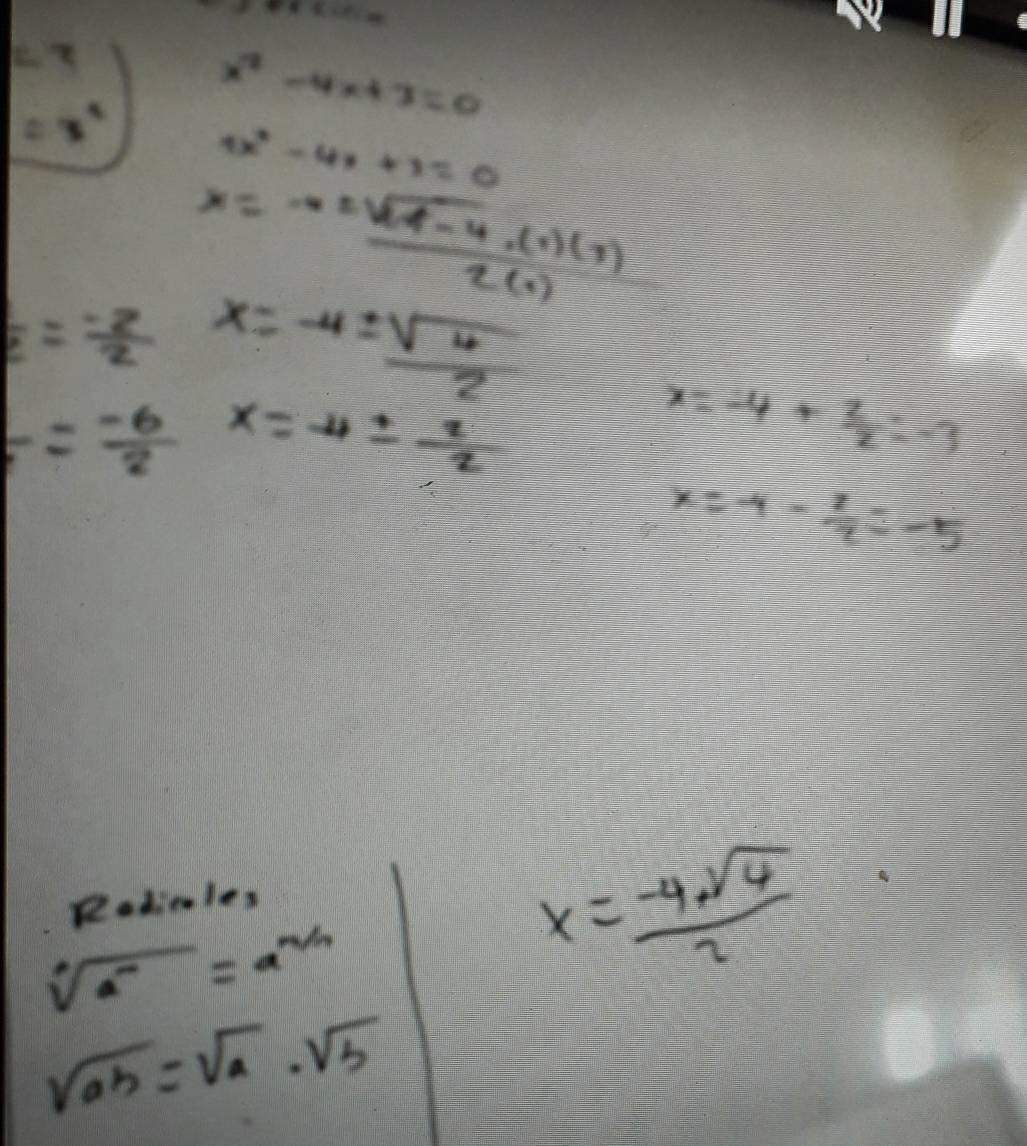 = 3
x² - 4x + 3 = 0
1x² - 4x + 3 = 0
x = -4 ± √4² - 4 . (1)(3)
2 (1)
= -2/2
x = -4 ± √4
2
= -6/2
x = -4 ± 2/2
x = -4 + 2/2 = -3
x = -4 - 2/2 = -5
Radicales
ⁿ√aᵐ = a^m/n
√ab = √a . √b
x = -4 + √4
2